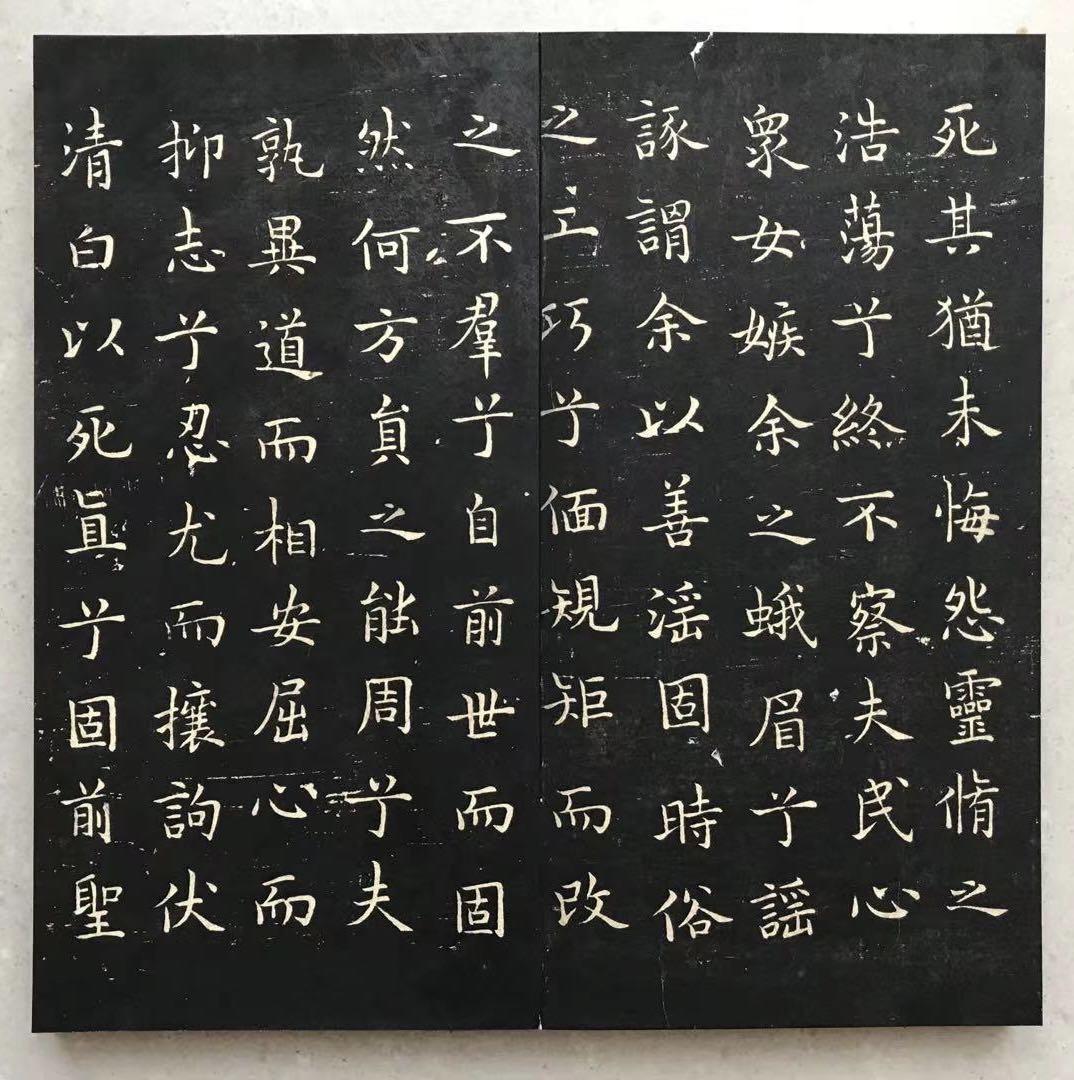 死其猶未悔怨靈脩之
浩蕩兮終不察夫民心
衆女嫉余之蛾眉兮謡
諑謂余以善滛固時俗
之工巧兮偭規矩而改
之不羣兮自前世而固
然何方貟之能周兮夫
孰異道而相安屈心而
抑志兮忍尤而攘詢伏
清白以死眞兮固前聖